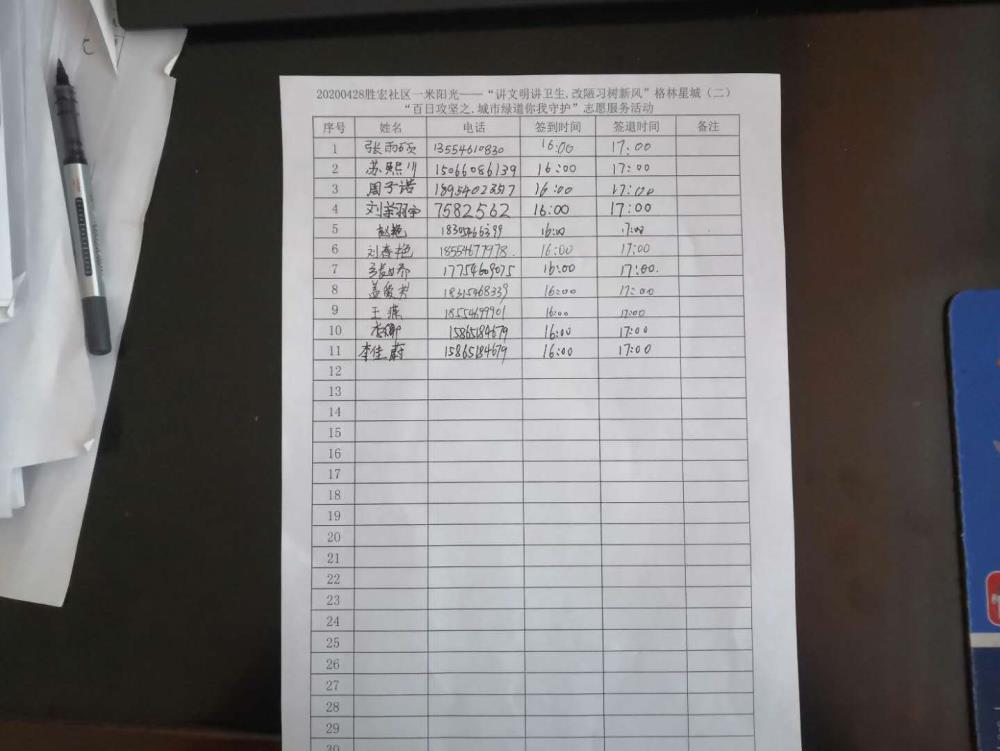 20200428胜宏社区一米阳光——“讲文明讲卫生,改陋习树新风”格林星城（二）
“百日攻坚之,城市绿道你我守护”志愿服务活动
序号 姓名 电话 签到时间 签退时间 备注
1 张雨硕 13554610830 16:00 17:00
2 苏熙川 15066086139 16:00 17:00
3 周子诺 16:00 17:00
4 7582562 16:00 17:00
5 赵艳 16:00 17:00
6 刘春艳 16:00 17:00
7 17754609075 16:00 17:00.
8 18315468339 16:00 17:00
9 王 18554699901 16:00 17:00
10 15865184679 16:00 17:00
11 李佳蔚 15865184679 16:00 17:00
12
13
14
15
16
17
18
19
20
21
22
23
24
25
26
27
28
29
30